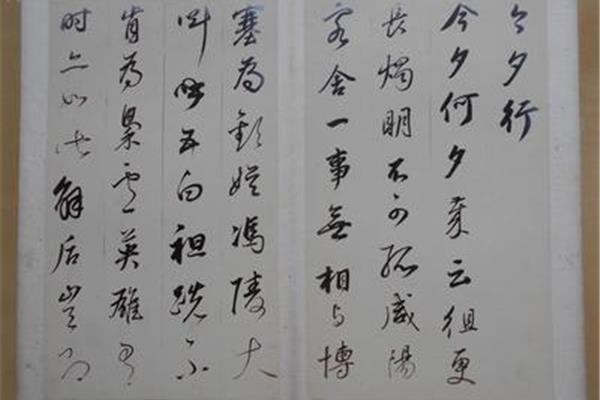 今夕行
今夕何夕歲云徂更
長燭明不可孤咸陽
客舍一事無相与博
塞為歡娛馮陵大
叫呼五白袒跣不
肯為梟盧英雄有
時亦如此解后豈即